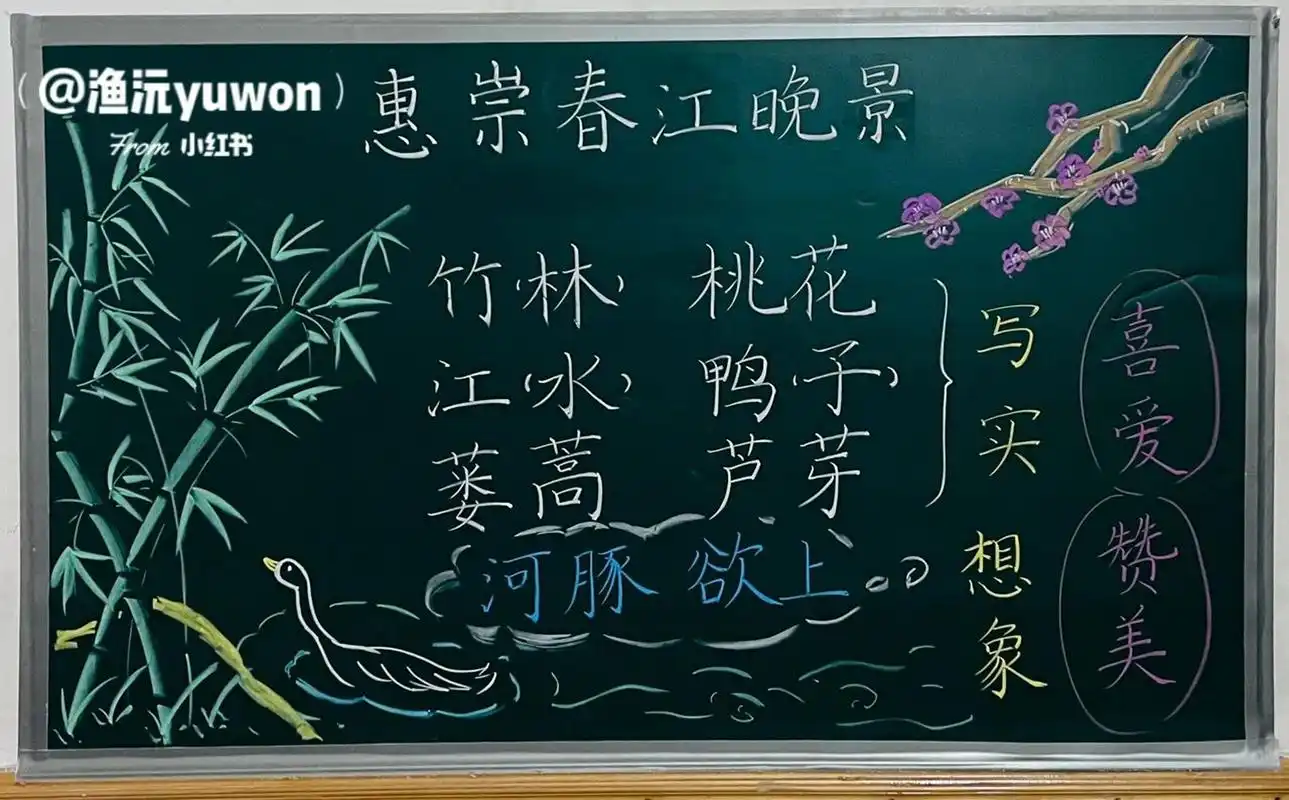 @渔沅yuwon
From 小红书
惠崇春江晚景
竹(林) 桃花
江(水) 鸭(子)
蒌蒿 芦芽
河豚欲上
写实
想象
喜爱
赞美